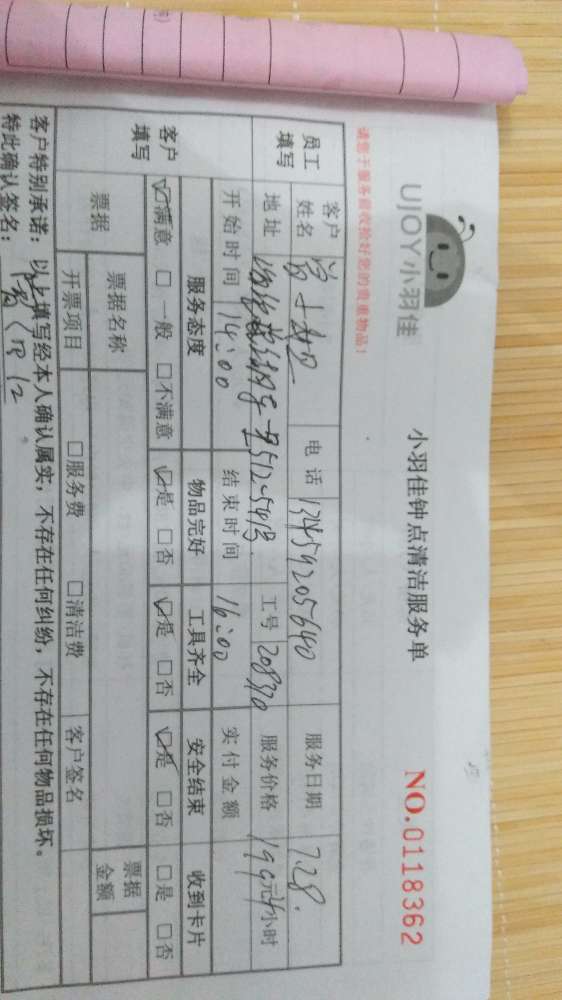 UJOY小羽佳
小羽佳钟点清洁服务单
NO.0118362
请您于服务前收拾好您的贵重物品！
员工填写
客户姓名
电话
服务日期 7.28.
地址
工号 208370
服务价格
小时
开始时间 14:00
结束时间 16:00
实付金额
客户填写
服务态度 物品完好 工具齐全 安全结束 收到卡片
☑满意 □一般 □不满意 ☑是 □否 ☑是 □否 ☑是 □否 □是 □否
票据
票据名称
票据金额
开票项目 □服务费 □清洁费 客户签名
客户特别承诺：以上填写经本人确认属实，不存在任何纠纷，不存在任何物品损坏。
特此确认签名：